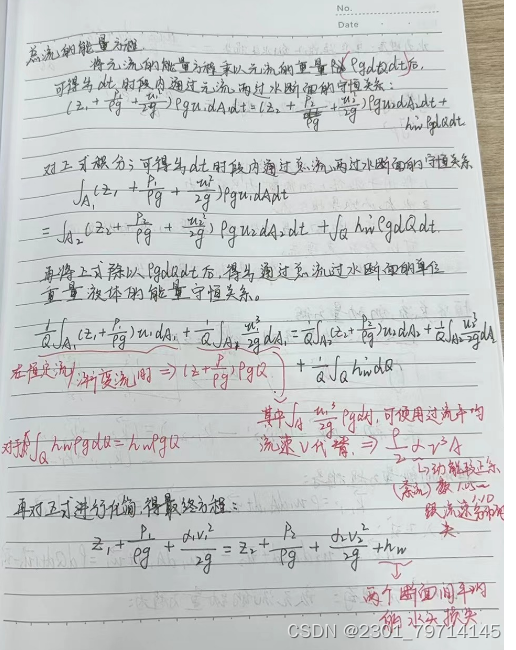 No.
Date
总流的能量方程
将元流的能量方程乘以元流的重量 ρgdQdt后,
可得当dt时段内通过元流两过水断面的守恒关系:
(z₁+P₁/ρg+u₁²/2g)ρgu₁dA₁dt=(z₂+P₂/ρg+u₂²/2g)ρgu₂dA₂dt+
hw'ρgdQdt
对上式积分,可得当dt时段内通过总流两过水断面的守恒关系
∫A₁(z₁+P₁/ρg+u₁²/2g)ρgu₁dA₁dt
=∫A₂(z₂+P₂/ρg+u₂²/2g)ρgu₂dA₂dt+∫Q hw'ρgdQdt
再将上式除以ρgdQdt后,得当通过总流过水断面的单位
重量液体的能量守恒关系。
1/Q∫A₁(z₁+P₁/ρg)u₁dA₁+1/Q∫A₁u₁³/2g dA₁=1/Q∫A₂(z₂+P₂/ρg)u₂dA₂+1/Q∫A₂u₂³/2g dA₂
+1/Q∫Q hw'dQ
在恒定流/渐变流时⇒(z+P/ρg)ρgQ
其中∫A u³/2g ρgdA,可使用过流平均
流速V代替,⇒ρ/2 αv³A
对于∫Q hwρgdQ=hwρgQ
↳动能校正系
(紊流)数1.05~1.10
流速分布
再对上式进行化简,得最终方程:
z₁+P₁/ρg+α₁v₁²/2g=z₂+P₂/ρg+α₂v₂²/2g+hw
两个断面间平均
的水头损失
CSDN @2301_79714145